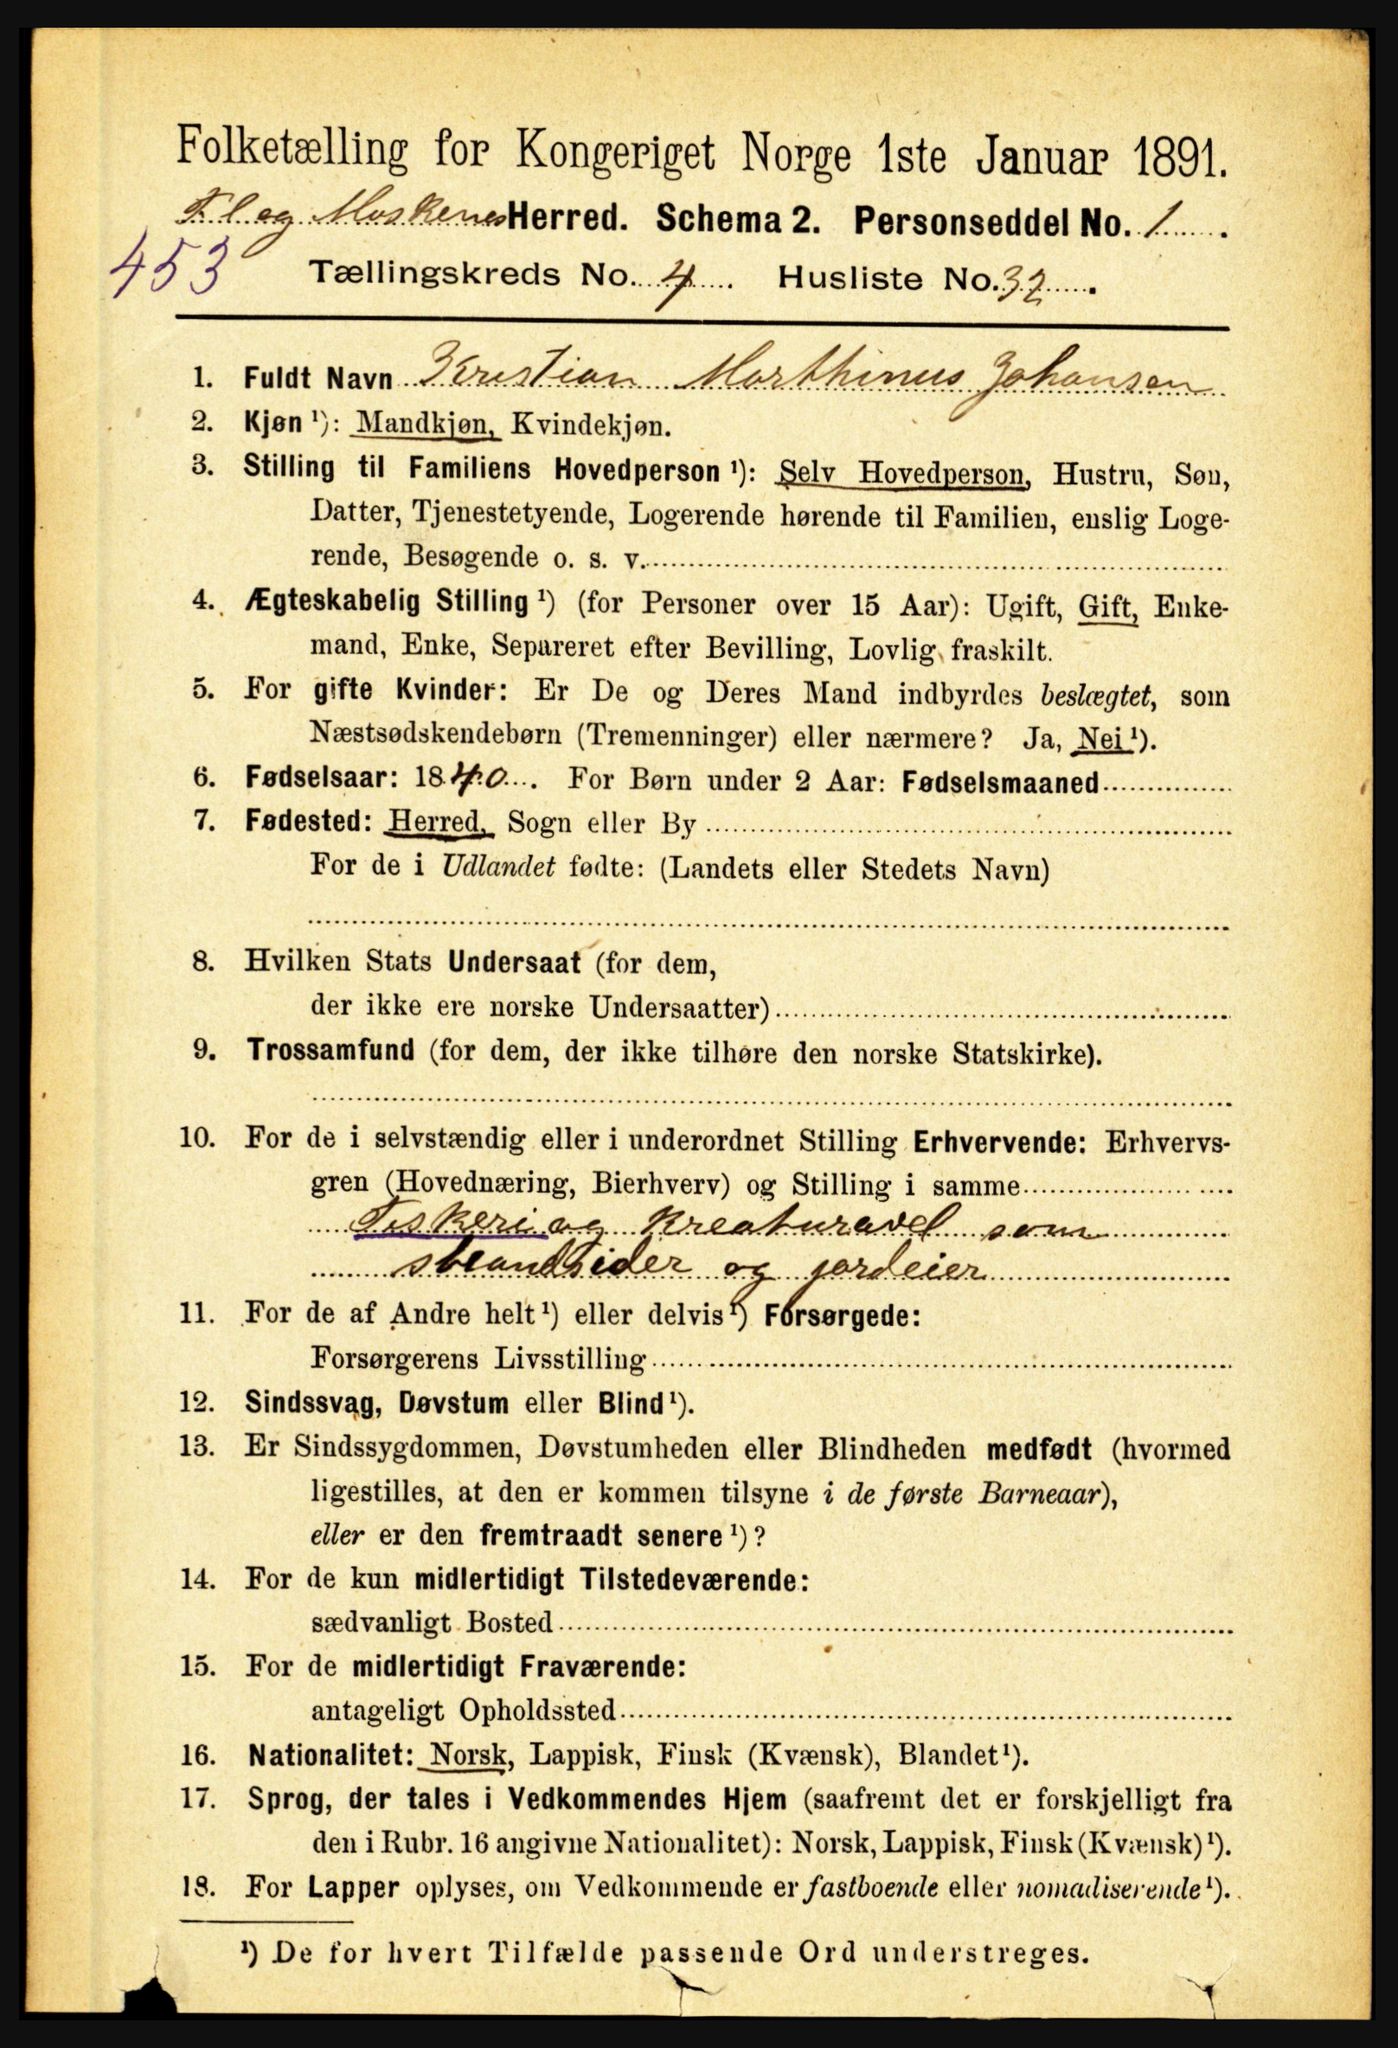 Folketælling for Kongeriget Norge 1ste Januar 1891.
Fl og Moskenes Herred. Schema 2. Personseddel No. 1.
453
Tællingskreds No. 4. Husliste No. 32.
1. Fuldt Navn Kristian Marthinus Johansen
2. Kjøn ¹): Mandkjøn, Kvindekjøn.
3. Stilling til Familiens Hovedperson ¹): Selv Hovedperson, Hustru, Søn,
Datter, Tjenestetyende, Logerende hørende til Familien, enslig Loge-
rende, Besøgende o. s. v.
4. Ægteskabelig Stilling ¹) (for Personer over 15 Aar): Ugift, Gift, Enke-
mand, Enke, Separeret efter Bevilling, Lovlig fraskilt.
5. For gifte Kvinder: Er De og Deres Mand indbyrdes beslægtet, som
Næstsødskendebørn (Tremenninger) eller nærmere? Ja, Nei ¹).
6. Fødselsaar: 1840. For Børn under 2 Aar: Fødselsmaaned
7. Fødested: Herred, Sogn eller By
For de i Udlandet fødte: (Landets eller Stedets Navn)
8. Hvilken Stats Undersaat (for dem,
der ikke ere norske Undersaatter)
9. Trossamfund (for dem, der ikke tilhøre den norske Statskirke).
10. For de i selvstændig eller i underordnet Stilling Erhvervende: Erhvervs-
gren (Hovednæring, Bierhverv) og Stilling i samme
Fiskeri og kreaturavel som
strandsider og jordeier
11. For de af Andre helt ¹) eller delvis ¹) Forsørgede:
Forsørgerens Livsstilling
12. Sindssvag, Døvstum eller Blind ¹).
13. Er Sindssygdommen, Døvstumheden eller Blindheden medfødt (hvormed
ligestilles, at den er kommen tilsyne i de første Barneaar),
eller er den fremtraadt senere ¹)?
14. For de kun midlertidigt Tilstedeværende:
sædvanligt Bosted
15. For de midlertidigt Fraværende:
antageligt Opholdssted
16. Nationalitet: Norsk, Lappisk, Finsk (Kvænsk), Blandet ¹).
17. Sprog, der tales i Vedkommendes Hjem (saafremt det er forskjelligt fra
den i Rubr. 16 angivne Nationalitet): Norsk, Lappisk, Finsk (Kvænsk) ¹).
18. For Lapper oplyses, om Vedkommende er fastboende eller nomadiserende ¹).
¹) De for hvert Tilfælde passende Ord understreges.